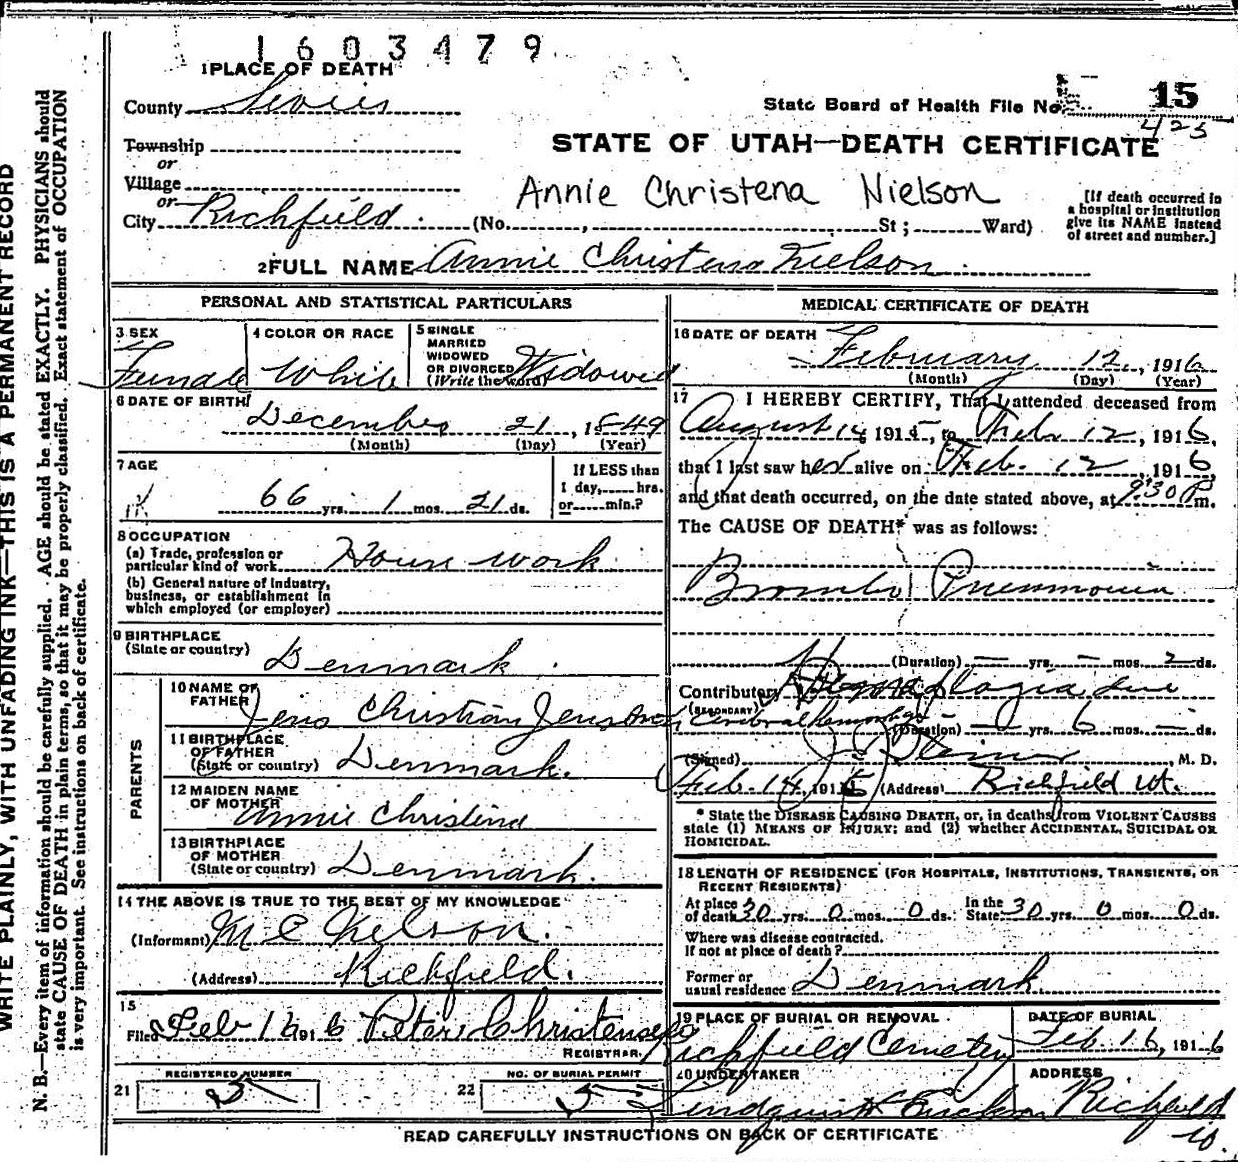 1603479
1 PLACE OF DEATH
County Sevier
State Board of Health File No. 15
425
Township
or
STATE OF UTAH—DEATH CERTIFICATE
Village
or
Annie Christena Nielson
City Richfield. (No. , St ; Ward)
[If death occurred in a hospital or institution give its NAME instead of street and number.]
2 FULL NAME Annie Christena Nielson
PERSONAL AND STATISTICAL PARTICULARS
3 SEX Female
4 COLOR OR RACE White
5 SINGLE MARRIED WIDOWED OR DIVORCED (Write the word) Widowed
6 DATE OF BIRTH
December 21, 1849
(Month) (Day) (Year)
7 AGE
66 yrs. 1 mos. 21 ds.
If LESS than 1 day, hrs. or min.?
8 OCCUPATION
(a) Trade, profession or particular kind of work House work
(b) General nature of industry, business, or establishment in which employed (or employer)
9 BIRTHPLACE
(State or country) Denmark.
PARENTS
10 NAME OF FATHER Jens Christian Jensen
11 BIRTHPLACE OF FATHER (State or country) Denmark.
12 MAIDEN NAME OF MOTHER Annie Christina
13 BIRTHPLACE OF MOTHER (State or country) Denmark.
14 THE ABOVE IS TRUE TO THE BEST OF MY KNOWLEDGE
(Informant) M C Nelson.
(Address) Richfield.
15
Filed Feb 16 1916 Peter Christensen
REGISTRAR.
21 REGISTERED NUMBER 5
22 NO. OF BURIAL PERMIT 5
MEDICAL CERTIFICATE OF DEATH
16 DATE OF DEATH
February 12, 1916
(Month) (Day) (Year)
17 I HEREBY CERTIFY, That I attended deceased from
August 14 1915, to Feb. 12, 1916,
that I last saw her alive on Feb. 12, 1916
and that death occurred, on the date stated above, at 9:30 P. m.
The CAUSE OF DEATH* was as follows:
Broncho Pneumonia
(Duration) — yrs. — mos. 2 ds.
Contributory Hemiplegia due
(SECONDARY) Cerebral hemorrhage
(Duration) — yrs. 6 mos. — ds.
(Signed) M. D.
Feb. 14, 1916 (Address) Richfield Ut.
* State the DISEASE CAUSING DEATH, or, in deaths from VIOLENT CAUSES state (1) MEANS OF INJURY; and (2) whether ACCIDENTAL, SUICIDAL OR HOMICIDAL.
18 LENGTH OF RESIDENCE (FOR HOSPITALS, INSTITUTIONS, TRANSIENTS, OR RECENT RESIDENTS)
At place of death 30 yrs. 0 mos. 0 ds. In the State 30 yrs. 0 mos. 0 ds.
Where was disease contracted.
If not at place of death?
Former or usual residence Denmark
19 PLACE OF BURIAL OR REMOVAL Richfield Cemetery
DATE OF BURIAL Feb 16, 1916
20 UNDERTAKER Lindquist & Erickson
ADDRESS Richfield
Ut.
READ CAREFULLY INSTRUCTIONS ON BACK OF CERTIFICATE
WRITE PLAINLY, WITH UNFADING INK—THIS IS A PERMANENT RECORD
N. B.—Every item of information should be carefully supplied. AGE should be stated EXACTLY. PHYSICIANS should
state CAUSE OF DEATH in plain terms, so that it may be properly classified. Exact statement of OCCUPATION
is very important. See instructions on back of certificate.